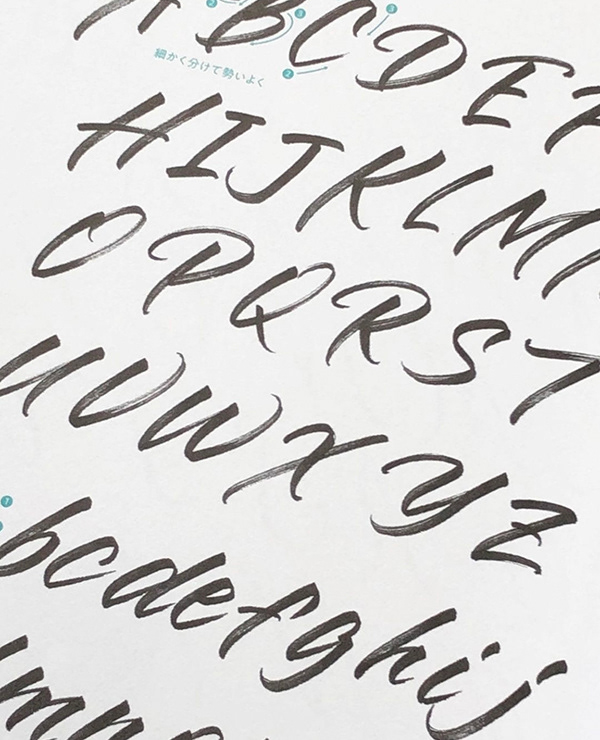 A B C D E F
細かく分けて勢いよく
H I J K L M
O P Q R S T
U V W X Y Z
b c d e f g h i j
l m n o